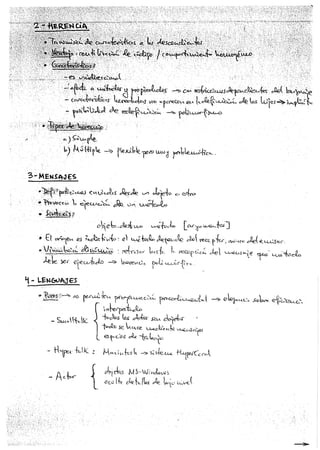 2 - HERENCIA
• Transmisión de características a los descendientes
• Ventaja: reutilización de código / comportamiento homogéneo
• Características:
- es unidireccional
- afecta a métodos y propiedades → con restricciones dependientes del lenguaje
- características heredadas no aparecen en la definición de los hijos → implícito
- posibilidad de redefinición → polimorfismo
• Tipos de herencia:
a) Simple
b) Múltiple → flexible pero muy problemática.
3 - MENSAJES
• Def: peticiones enviadas desde un objeto a otro
• Provoca la ejecución de un método
• Sintaxis:
objeto destino método [argumentos]
• El origen es indistinto: el método depende del receptor, no del emisor.
• Vinculación dinámica: retrasar hasta la recepción del mensaje que método
debe ser ejecutado → herencia, polimorfismo
4 - LENGUAJES
• Puros: → no permiten programación procedimental → elegancia sobre eficiencia.
- Smalltalk
interpretado
todos los datos son objetos
todo se hace mediante mensajes
espacios de trabajo
- Hyper talk : Macintosh → sistema HyperCard
- Actor
objetos MS-Windows
oculta detalles de bajo nivel